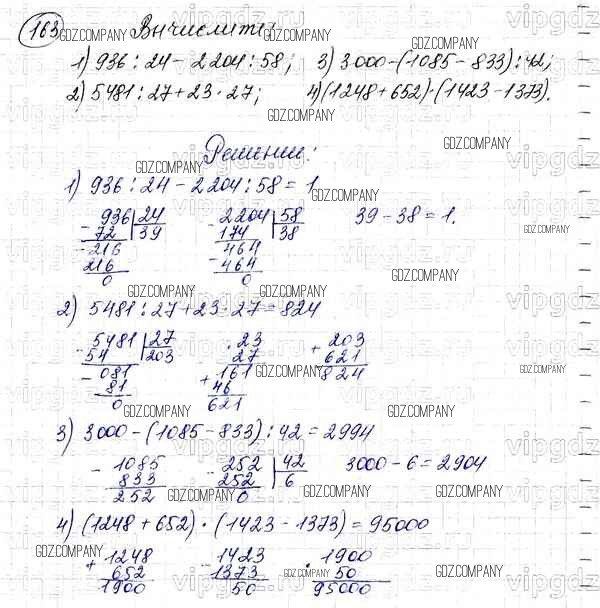 163 Вычислите:
1) 936 : 24 - 2204 : 58; 3) 3000 - (1085 - 833) : 42;
2) 5481 : 27 + 23 · 27; 4) (1248 + 652) · (1423 - 1373).
Решение:
1) 936 : 24 - 2204 : 58 = 1
936 24 2204 58 39 - 38 = 1.
- 72 39 - 174 38
- 216 464
216 - 464
0 0
2) 5481 : 27 + 23 · 27 = 824
5481 27 · 23 + 203
- 54 203 27 621
- 081 + 161 824
81 46
0 621
3) 3000 - (1085 - 833) : 42 = 2994
- 1085 - 252 42 3000 - 6 = 2904
833 252 6
252 0
4) (1248 + 652) · (1423 - 1373) = 95000
+ 1248 - 1423 · 1900
652 1373 50
1900 50 95000
GDZ.COMPANY
vipgdz.ru